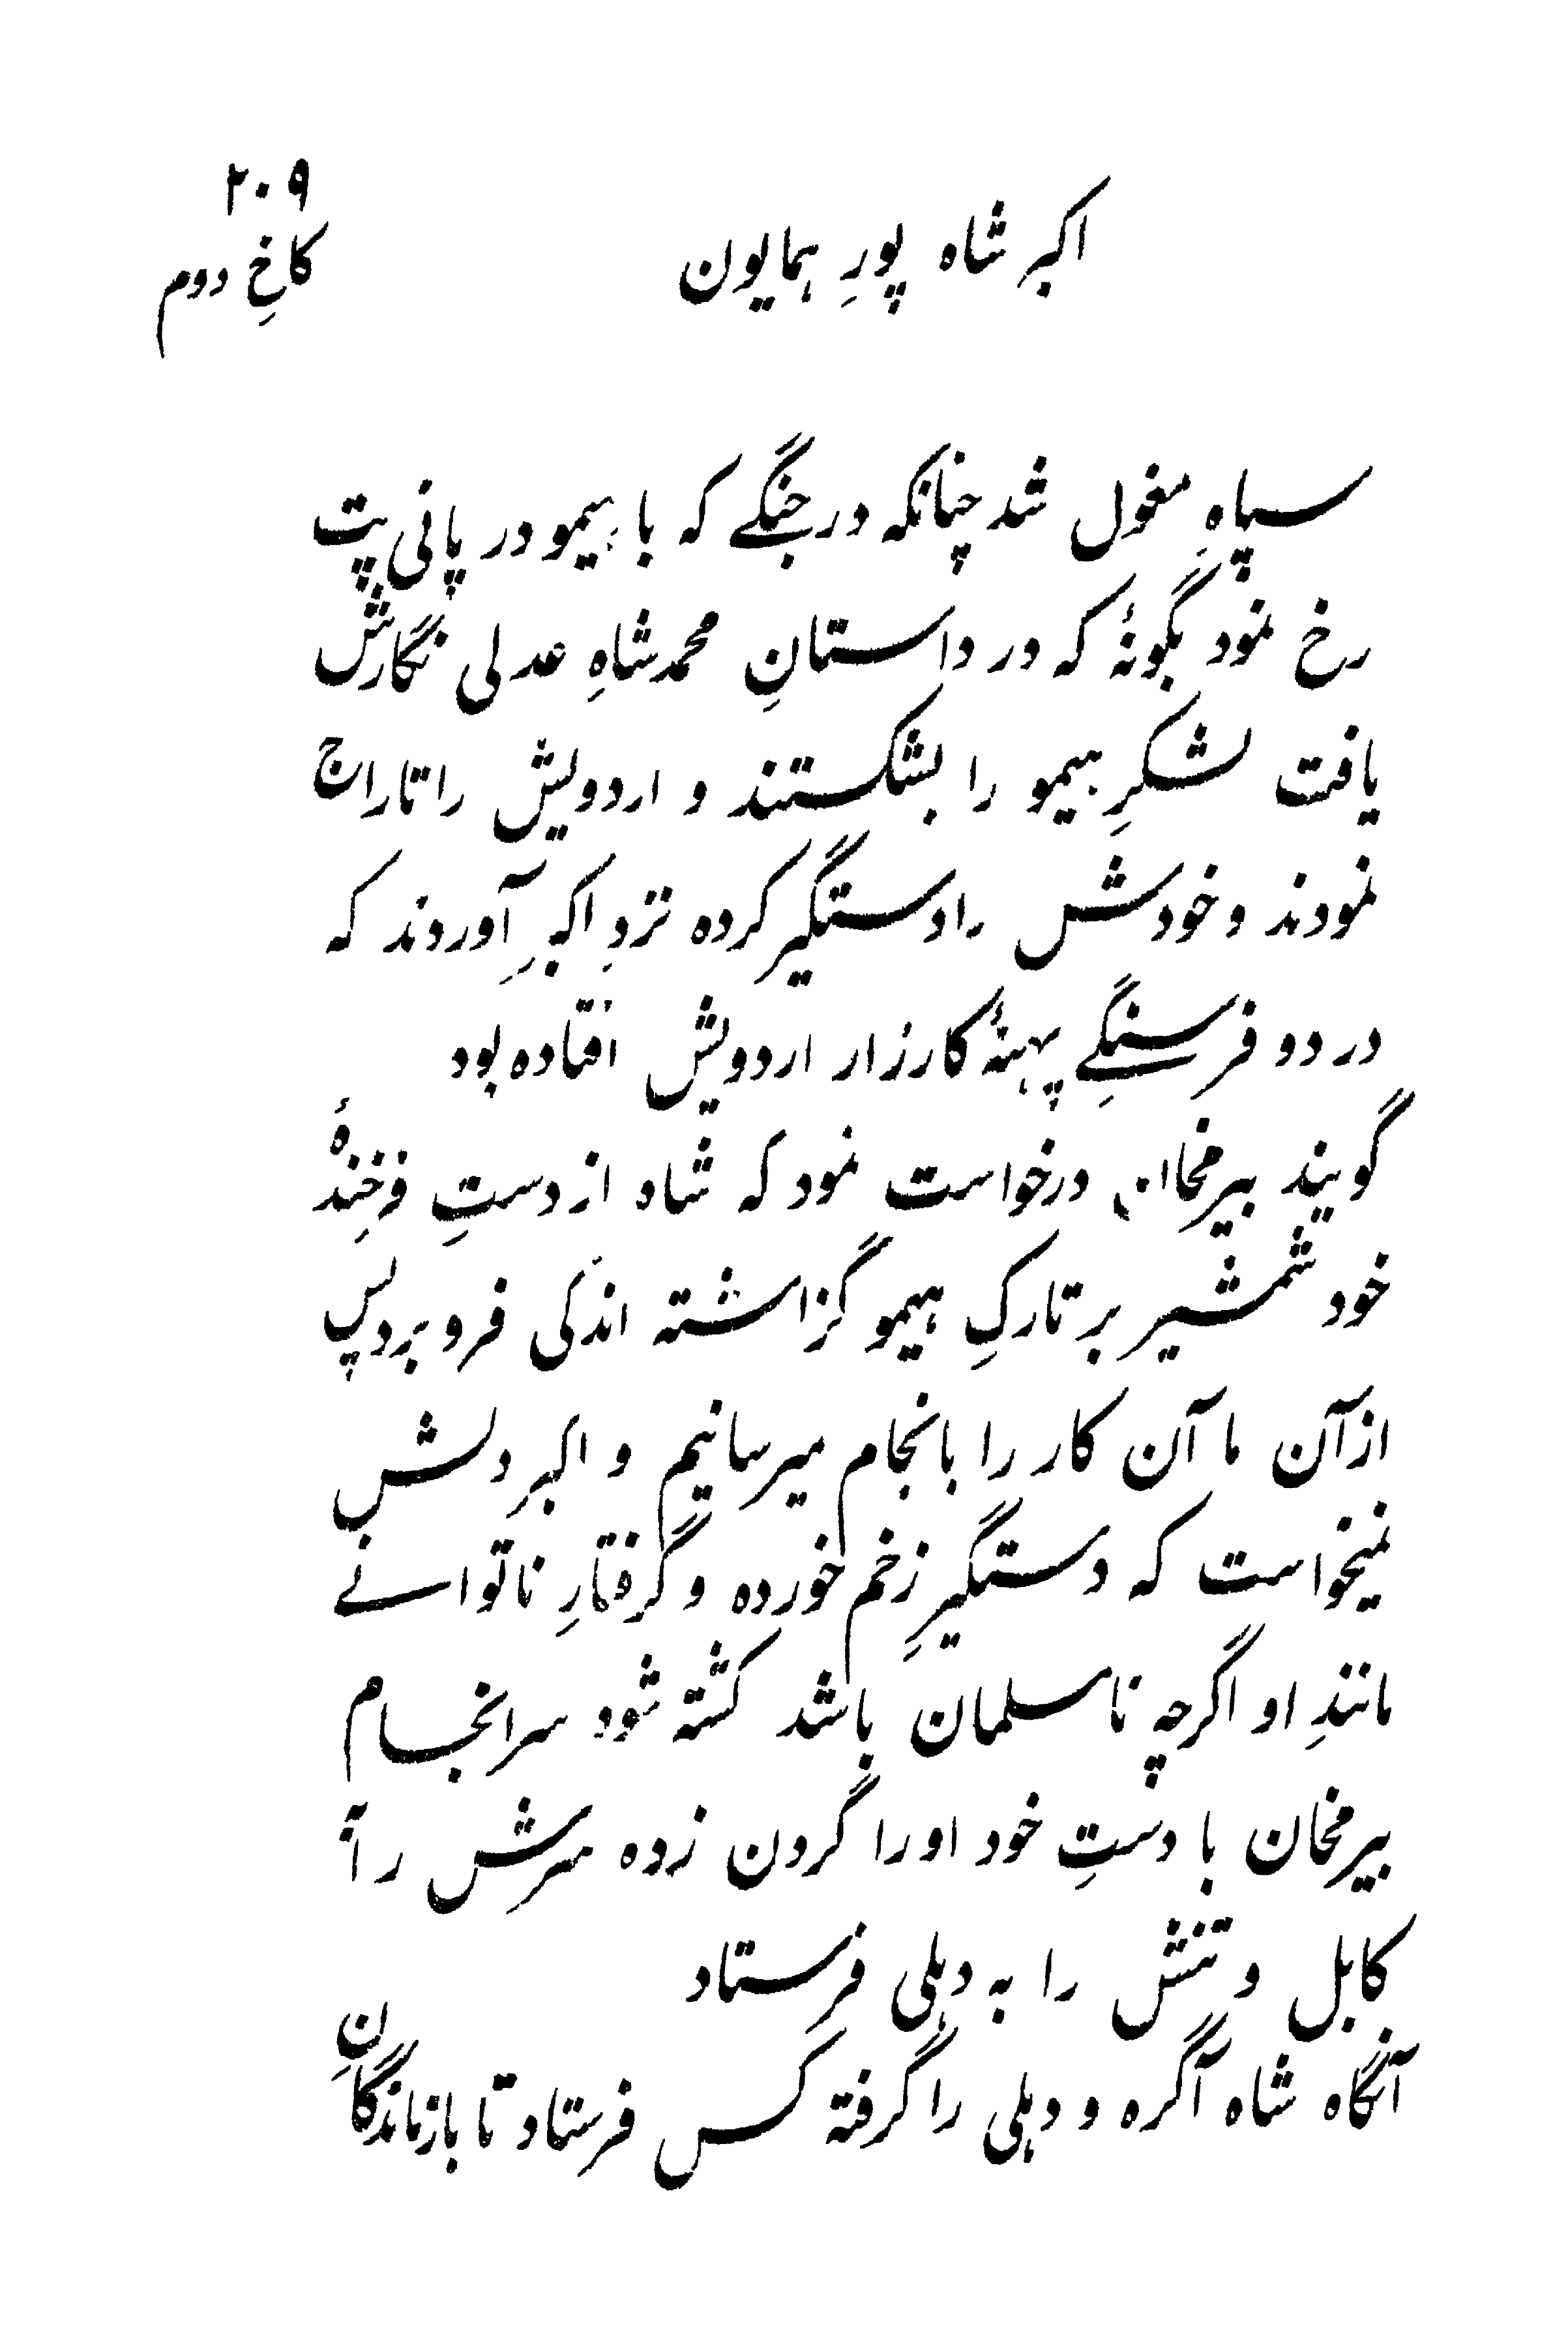 ۲۰۹
اکبر شاه پورِ همایون
کاخِ دوم
سپاهِ مغول شد چنانکه در جنگے که با هیمو در پانی پت
رخ نمود بگونهٔ که در داستانِ محمد شاهِ عدلی نگارش
یافت لشکرِ هیمو را بشکستند و اردویش را تاراج
نمودند و خودش را دستگیر کرده نزدِ اکبر آوردند که
در دو فرسنگےِ پهنهٔ کارزار اردویش افتاده بود
گویند بیرمخان درخواست نمود که شاه از دستِ فرخندهٔ
خود شمشیر بر تارکِ هیمو گزاشته اندکی فرو برد پس
از آن ما آن کار را بانجام میرسانیم و اکبر دلش
نمیخواست که دستگیرِ زخم خورده و گرفتارِ ناتوانے
مانندِ او اگرچه نامسلمان باشد کشته شود سرانجام
بیرمخان با دستِ خود او را گردن زده سرش را به
کابل و تنش را به دهلی فرستاد
آنگاه شاه آگره و دهلی را گرفته کس فرستاد تا بازماندگانِ